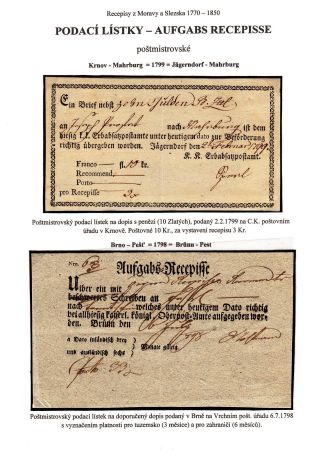 Recepisy z Moravy a Slezska 1770 – 1850
PODACÍ LÍSTKY – AUFGABS RECEPISSE
poštmistrovské
Krnov - Mahrburg = 1799 = Jägerndorf - Mahrburg
Ein Brief nebst zehn Gulden
an Joseph nach Mahrburg ist dem
hiesig k. k. Erbabsatzpostamte unter heutigem dato zur Beförderung
richtig übergeben worden. Jägerndorf den 2 1799
K. K. Erbabsatzpostamt.
Franco — fl. 10 kr.
Recommend.
Porto
pro Recepisse 3x
Poštmistrovský podací lístek na dopis s penězi (10 Zlatých), podaný 2.2.1799 na C.K. poštovním
úřadu v Krnově. Poštovné 10 Kr., za vystavení recepisu 3 Kr.
Brno – Pešť = 1798 = Brünn - Pest
Nro.
Aufgabs-Recepisse
Über ein mit
beschwertes Schreiben an
nach welches unter heutigem Dato richtig
bei allhiesig kaiserl. königl. Oberpost-Amts aufgegeben worden.
Brünn den 6 798
a Dato inländisch drey
und ausländisch sechs
Monate giltig.
Poštmistrovský podací lístek na doporučený dopis podaný v Brně na Vrchním pošt. úřadu 6.7.1798
s vyznačením platnosti pro tuzemsko (3 měsíce) a pro zahraničí (6 měsíců).